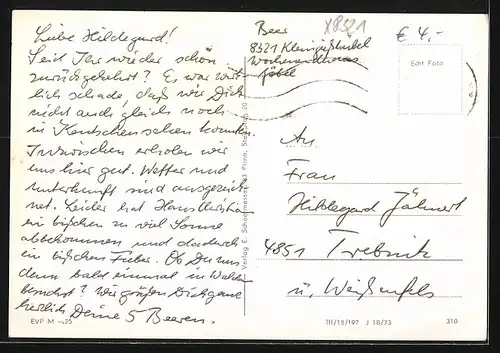 Liebe Hildegard!
Seid Ihr wieder schön
zurückgekehrt? Es war wirk-
lich schade, daß wir Dich
nicht auch gleich noch
in Kentschen sehen konnten.
Inzwischen erholen wir
uns hier gut. Wetter und
Unterkunft sind ausgezeich-
net. Leider hat Hans Christian
ein bißchen zu viel Sonne
abbekommen und dadurch
ein bißchen Fieber. Ob Du uns
denn bald einmal in Walden
besuchst? Wir grüßen Dich ganz
herzlich Deine 5 Beeren.
EVP M -,25
Verlag E. Schoenmesser, 83 Pirna,
Beer
8321
Wochenendhaus
X8521
€ 4,-
Echt Foto
An
Frau
Hildegard Jähnert
4851 Trebnitz
ü. Weißenfels
III/15/197 J 18/73 310